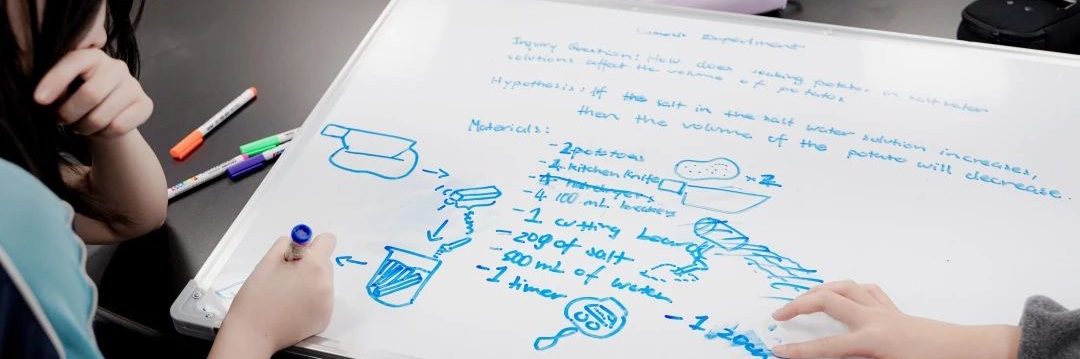 Experiment
Inquiry Question: How does soaking potato in salt water
solutions affect the volume of potatoes
Hypothesis: If the salt in the salt water solution increases,
then the volume of the potato will decrease.
Materials:
- 2 potatoes
- 1 kitchen knife
x 2
- 4 100 mL beakers
- 1 cutting board
- 20g of salt
- 500 mL of water
- 1 timer
- 1 20cm